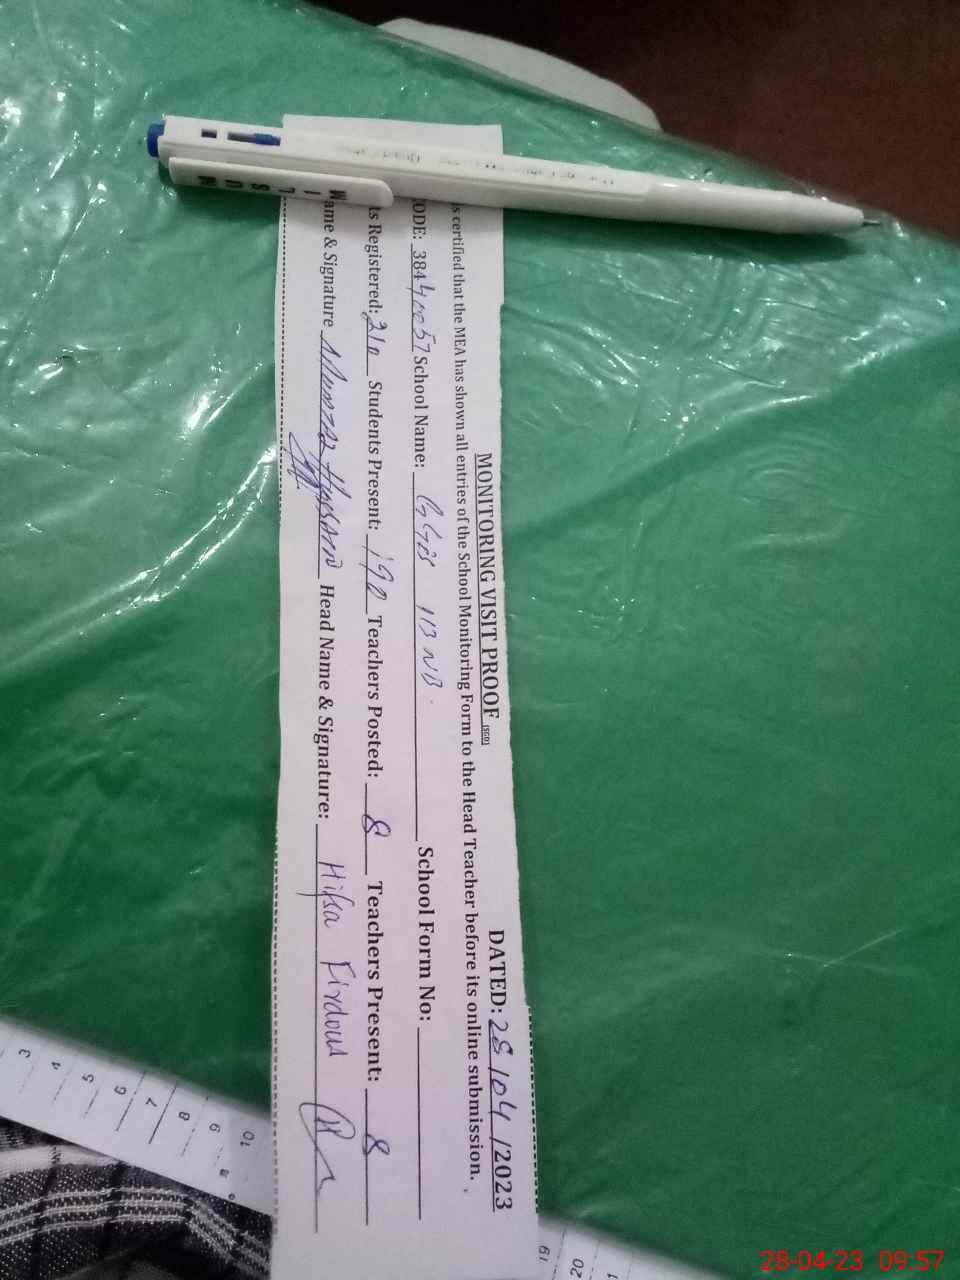 MONITORING VISIT PROOF (SGD) DATED: 28/04/2023
s certified that the MEA has shown all entries of the School Monitoring Form to the Head Teacher before its online submission.
ODE: 38440057 School Name: GGES 113 NB. School Form No:
ts Registered: 210 Students Present: 190 Teachers Posted: 8 Teachers Present: 8
ame & Signature Mumtaz Hussain Head Name & Signature: Hifsa Firdous
3
4
5
6
7
8
9
10
19
20
28-04-23 09:57